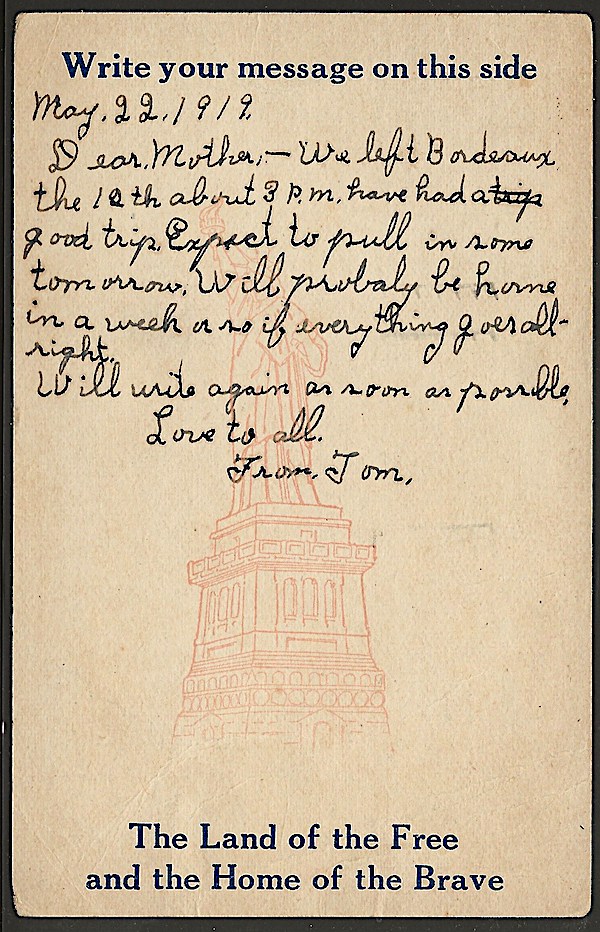 Write your message on this side
May, 22, 1919,
Dear, Mother,:— We left Bordeaux
the th about 3 P.m. have had a trip
good trip. Expect to pull in some
tomorrow. Will probaly be home
in a week or so if everything goes all-
right.
Will write again as soon as possible,
Love to all.
From, Tom,
The Land of the Free
and the Home of the Brave